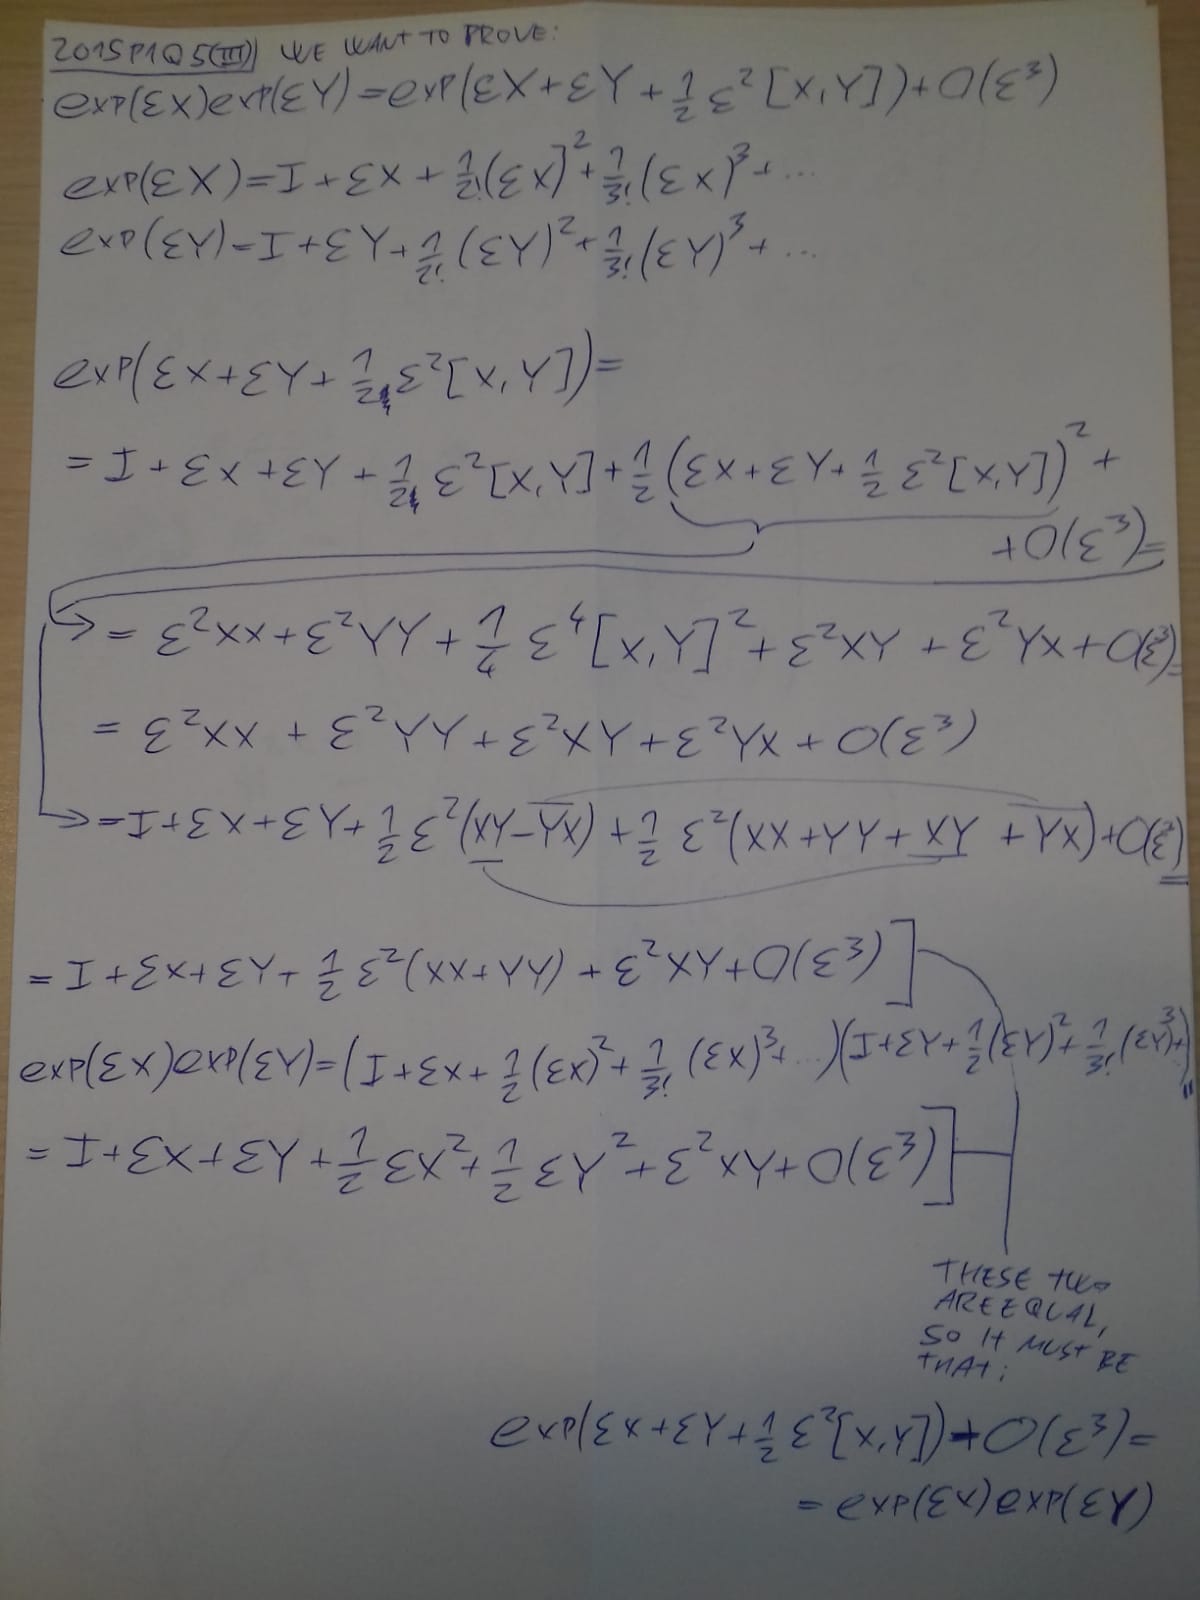 2015P1Q5(III) WE WANT TO PROVE:
exp(εX)exp(εY)=exp(εX+εY+½ε²[X,Y])+O(ε³)
exp(εX)=I+εX+½!(εX)²+1/3!(εX)³+...
exp(εY)=I+εY+½!(εY)²+1/3!(εY)³+...
exp(εX+εY+½ε²[X,Y])=
=I+εX+εY+½ε²[X,Y]+½(εX+εY+½ε²[X,Y])²+
+O(ε³)=
=ε²XX+ε²YY+¼ε⁴[X,Y]²+ε²XY+ε²YX+O(ε³)=
=ε²XX+ε²YY+ε²XY+ε²YX+O(ε³)
=I+εX+εY+½ε²(XY-YX)+½ε²(XX+YY+XY+YX)+O(ε³)=
=I+εX+εY+½ε²(XX+YY)+ε²XY+O(ε³)
exp(εX)exp(εY)=(I+εX+½(εX)²+1/3!(εX)³+...)(I+εY+½(εY)²+1/3!(εY)³+)=
=I+εX+εY+½εX²+½εY²+ε²XY+O(ε³)
THESE TWO
ARE EQUAL,
SO IT MUST BE
THAT:
exp(εX+εY+½ε²[X,Y])+O(ε³)=
=exp(εX)exp(εY)